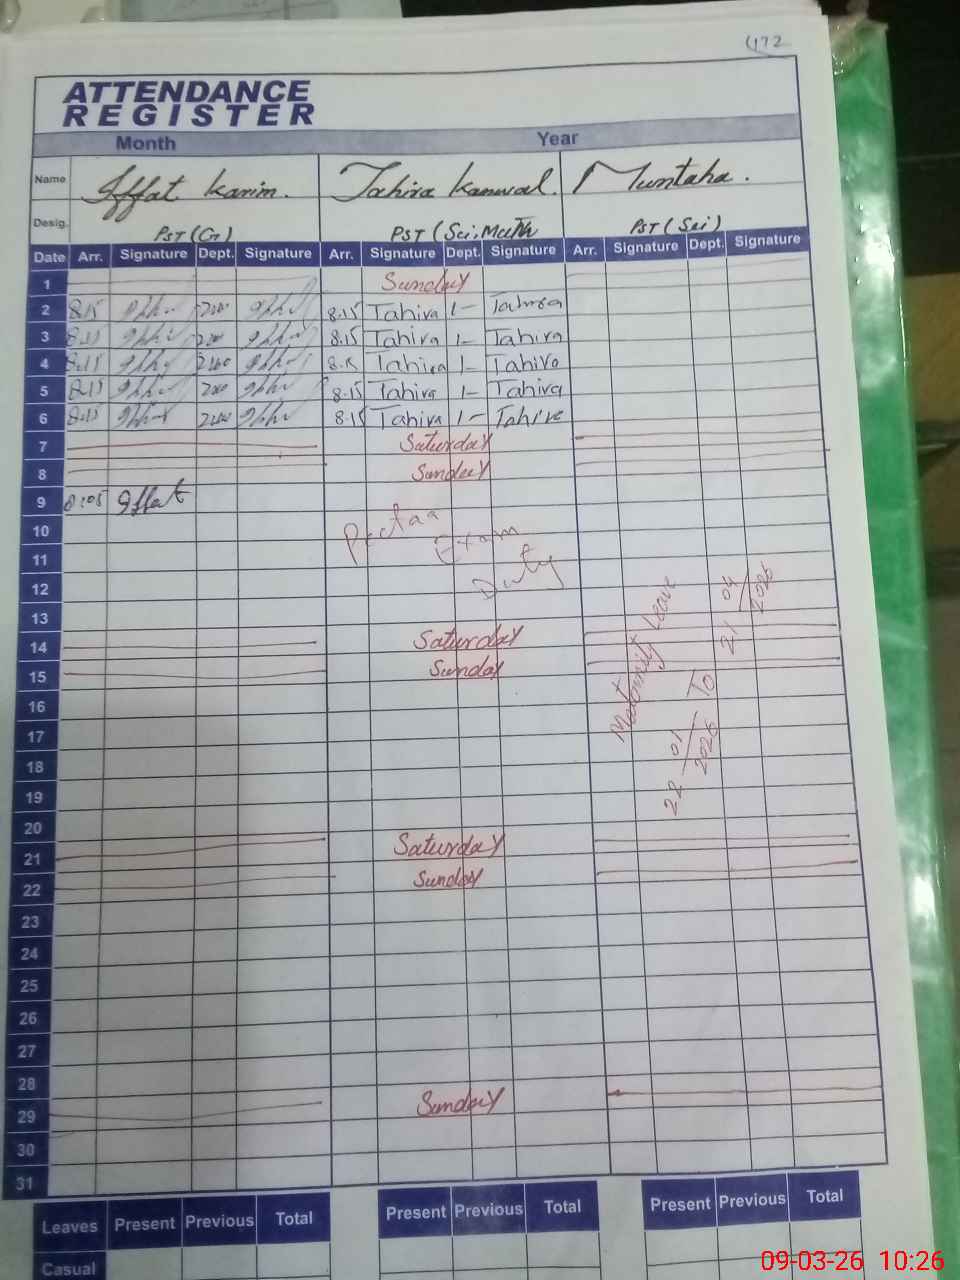 472
ATTENDANCE
REGISTER
Month Year
Name Iffat Karim. Tahira Kanwal. Muntaha.
Desig. PST (G) PST (Sci.Math PST (Sci)
Date Arr. Signature Dept. Signature Arr. Signature Dept. Signature Arr. Signature Dept. Signature
1 Sunday
2 8.15 8.15 Tahira 1- Tahira
3 8.15 8.15 Tahira 1- Tahira
4 8.15 8.15 Tahira 1- Tahira
5 8.15 8.15 Tahira 1- Tahira
6 8.15 8.15 Tahira 1- Tahira
7 Saturday
8 Sunday
9 8:05 Iffat
10 Pectaa Exam
11 Duty
12
13
14 Saturday
15 Sunday
16
17
18
19
20
21 Saturday
22 Sunday
23
24
25
26
27
28
29 Sunday
30
31
Maternity Leave
22/01/2026 To 21/04/2026
Leaves Present Previous Total Present Previous Total Present Previous Total
Casual
09-03-26 10:26